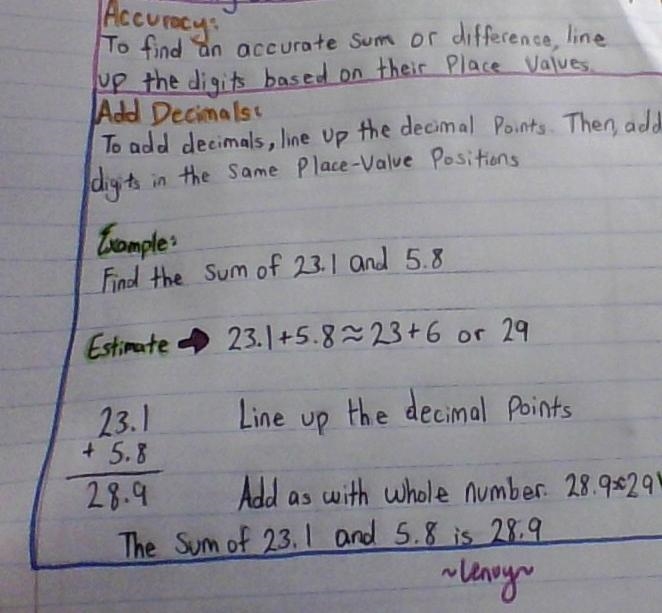 Accuracy:
To find an accurate sum or difference, line
up the digits based on their Place Values.
Add Decimals:
To add decimals, line up the decimal Points. Then, add
digits in the Same Place-Value Positions
Example:
Find the sum of 23.1 and 5.8
Estimate → 23.1+5.8≈23+6 or 29
23.1 Line up the decimal Points
+ 5.8
28.9 Add as with whole number. 28.9≈29
The Sum of 23.1 and 5.8 is 28.9